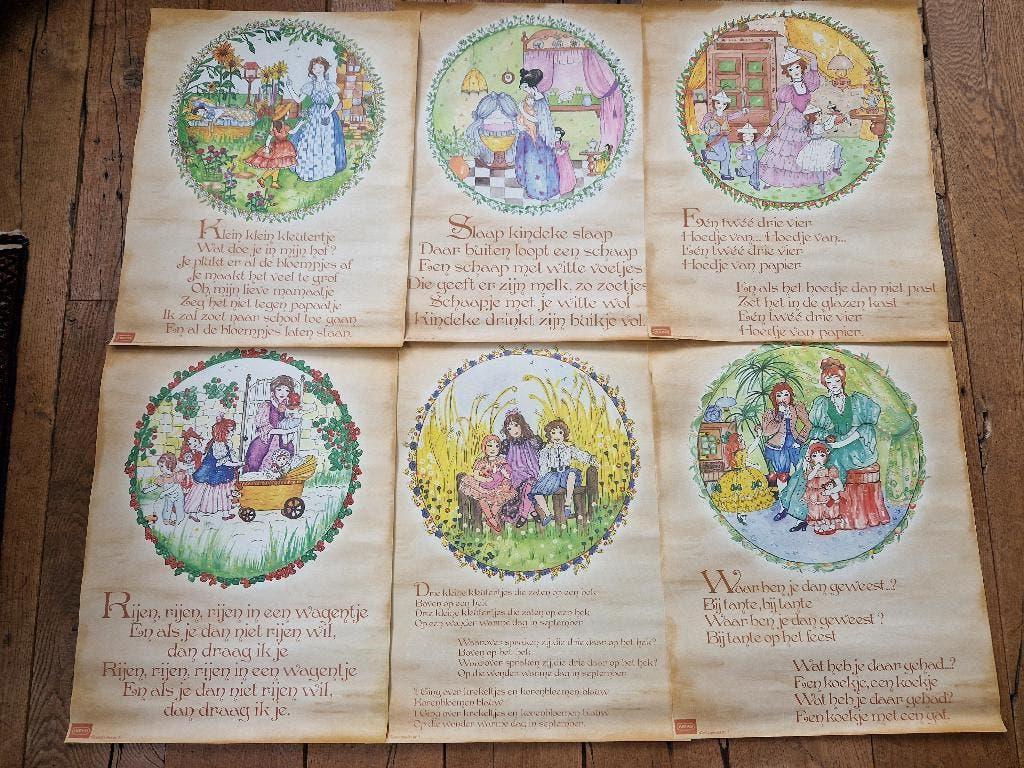 Klein klein kleutertje
Wat doe je in mijn hof?
Je plukt er al de bloempjes af
Je maakt het veel te grof
Oh, mijn lieve mamaatje
Zeg het niet tegen papaatje
Ik zal zoet naar school toe gaan
En al de bloempjes laten staan.
Slaap kindeke slaap
Daar buiten loopt een schaap
Een schaap met witte voetjes
Die geeft er zijn melk zo zoetjes
Schaapje met je witte wol
Kindeke drinkt zijn buikje vol.
Eén twéé drie vier
Hoedje van... Hoedje van...
Eén twéé drie vier
Hoedje van papier
En als het hoedje dan niet past
Zet het in de glazen kast
Eén twéé drie vier
Hoedje van papier.
Rijen, rijen, rijen in een wagentje
En als je dan niet rijen wil,
dan draag ik je
Rijen, rijen, rijen in een wagentje
En als je dan niet rijen wil,
dan draag ik je.
Drie kleine kleutertjes die zaten op een hek
Boven op een hek
Drie kleine kleutertjes die zaten op een hek
Op een wonder warme dag in september
Waarover spraken zij die drie daar op het hek?
Boven op het hek
Waarover spraken zij die drie daar op het hek?
Op die wonder warme dag in september
't Ging over krekeltjes en korenbloemen blauw
Korenbloemen blauw
't Ging over krekeltjes en korenbloemen blauw
Op die wonder warme dag in september.
Waar ben je dan geweest..?
Bij tante, bij tante
Waar ben je dan geweest?
Bij tante op het feest
Wat heb je daar gehad..?
Een koekje, een koekje
Wat heb je daar gehad?
Een koekje met een gat.